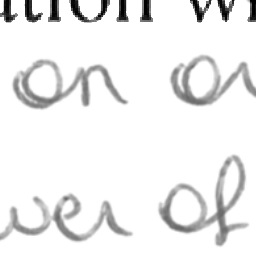 ation wi
on on
wer of